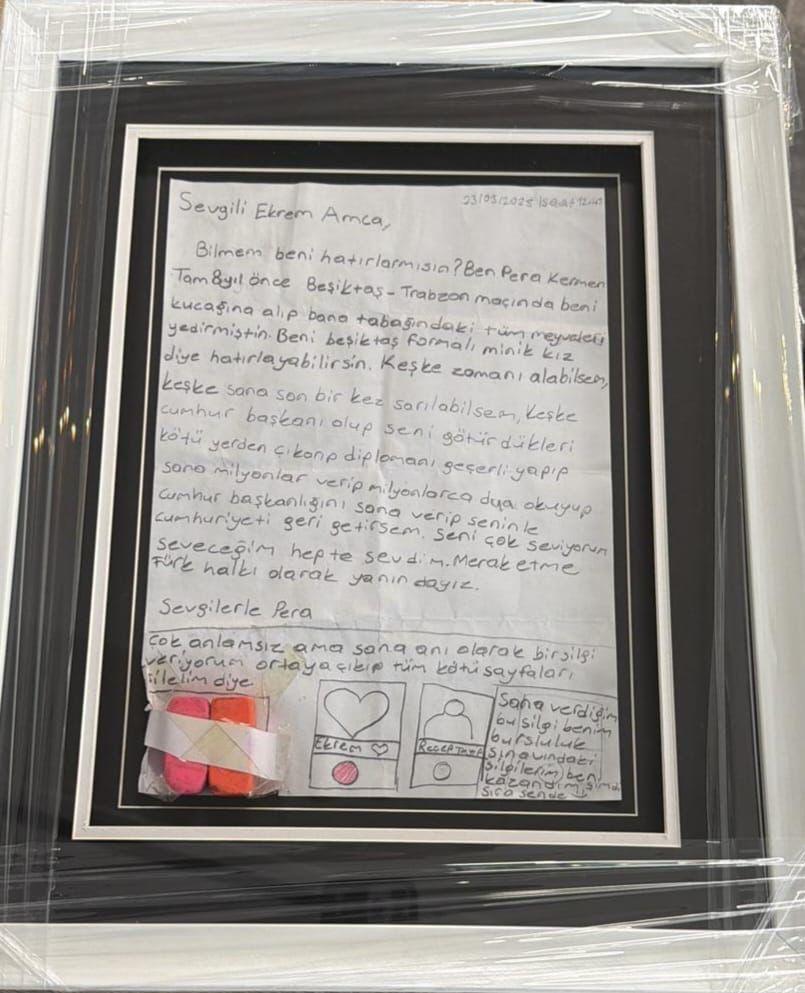 23/03/2025 saat
Sevgili Ekrem Amca,
Bilmem beni hatırlarmısın? Ben Pera Kermen
Tam 8 yıl önce Beşiktaş - Trabzon maçında beni
kucağına alıp bana tabağındaki tüm meyveleri
yedirmiştin. Beni beşiktaş formalı minik kız
diye hatırlayabilirsin. Keşke zamanı alabilsem,
keşke sana son bir kez sarılabilsem, keşke
cumhur başkanı olup seni götürdükleri
kötü yerden çıkarıp diplomanı geçerli yapıp
sana milyonlar verip milyonlarca dua okuyup
cumhur başkanlığını sana verip seninle
cumhuriyeti geri getirsem. Seni çok seviyorum
seveceğim hep te sevdim. Merak etme
Türk halkı olarak yanındayız.
Sevgilerle Pera
Çok anlamsız ama sana anı olarak bir silgi
veriyorum ortaya çıkıp tüm kötü sayfaları
silelim diye
Ekrem
Recep
Sana verdiğim
bu silgi benim
bursluluk
sınavındaki
silgilerim ben
kazandım şimdi
sıra sende